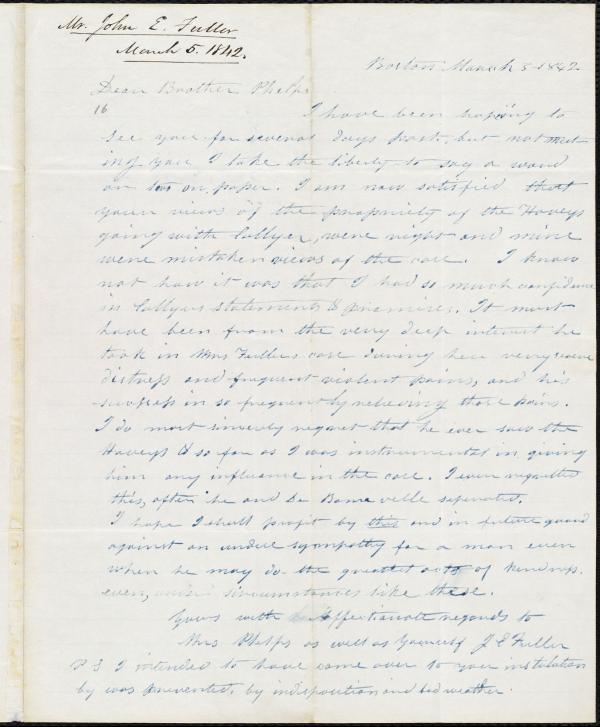 Mr. John E. Fuller
March 5. 1842.
Boston March 5 1842
Dear Brother Phelps
16
I have been hoping to
see you for several days past, but not meet-
ing you I take the liberty to say a word
or two on paper. I am now satisfied that
your views of the propriety of the Hoveys
going with Collyer, were right and mine
were mistaken views of the case. I know
not how it was that I had so much confidence
in Collyers statements & promises. It must
have been from the very deep interest he
took in Mrs Fullers case during her very severe
distress and frequent violent pains, and his
success in so frequently relieving those pains.
I do most sincerely regret that he ever saw the
Hoveys & so far as I was instrumental in giving
him any influence in the case. I even regretted
this, after he and De Bonneville seperated.
I hope I shall profit by this and in future guard
against an undue sympathy for a man even
when he may do the greatest acts of kindness.
even, under circumstances like these.
Yours with Affectionate regards to
Mrs Phelps as well as Yourself J E Fuller
P S I intended to have come over to your instalation
by was prevented, by indisposition and bad weather.